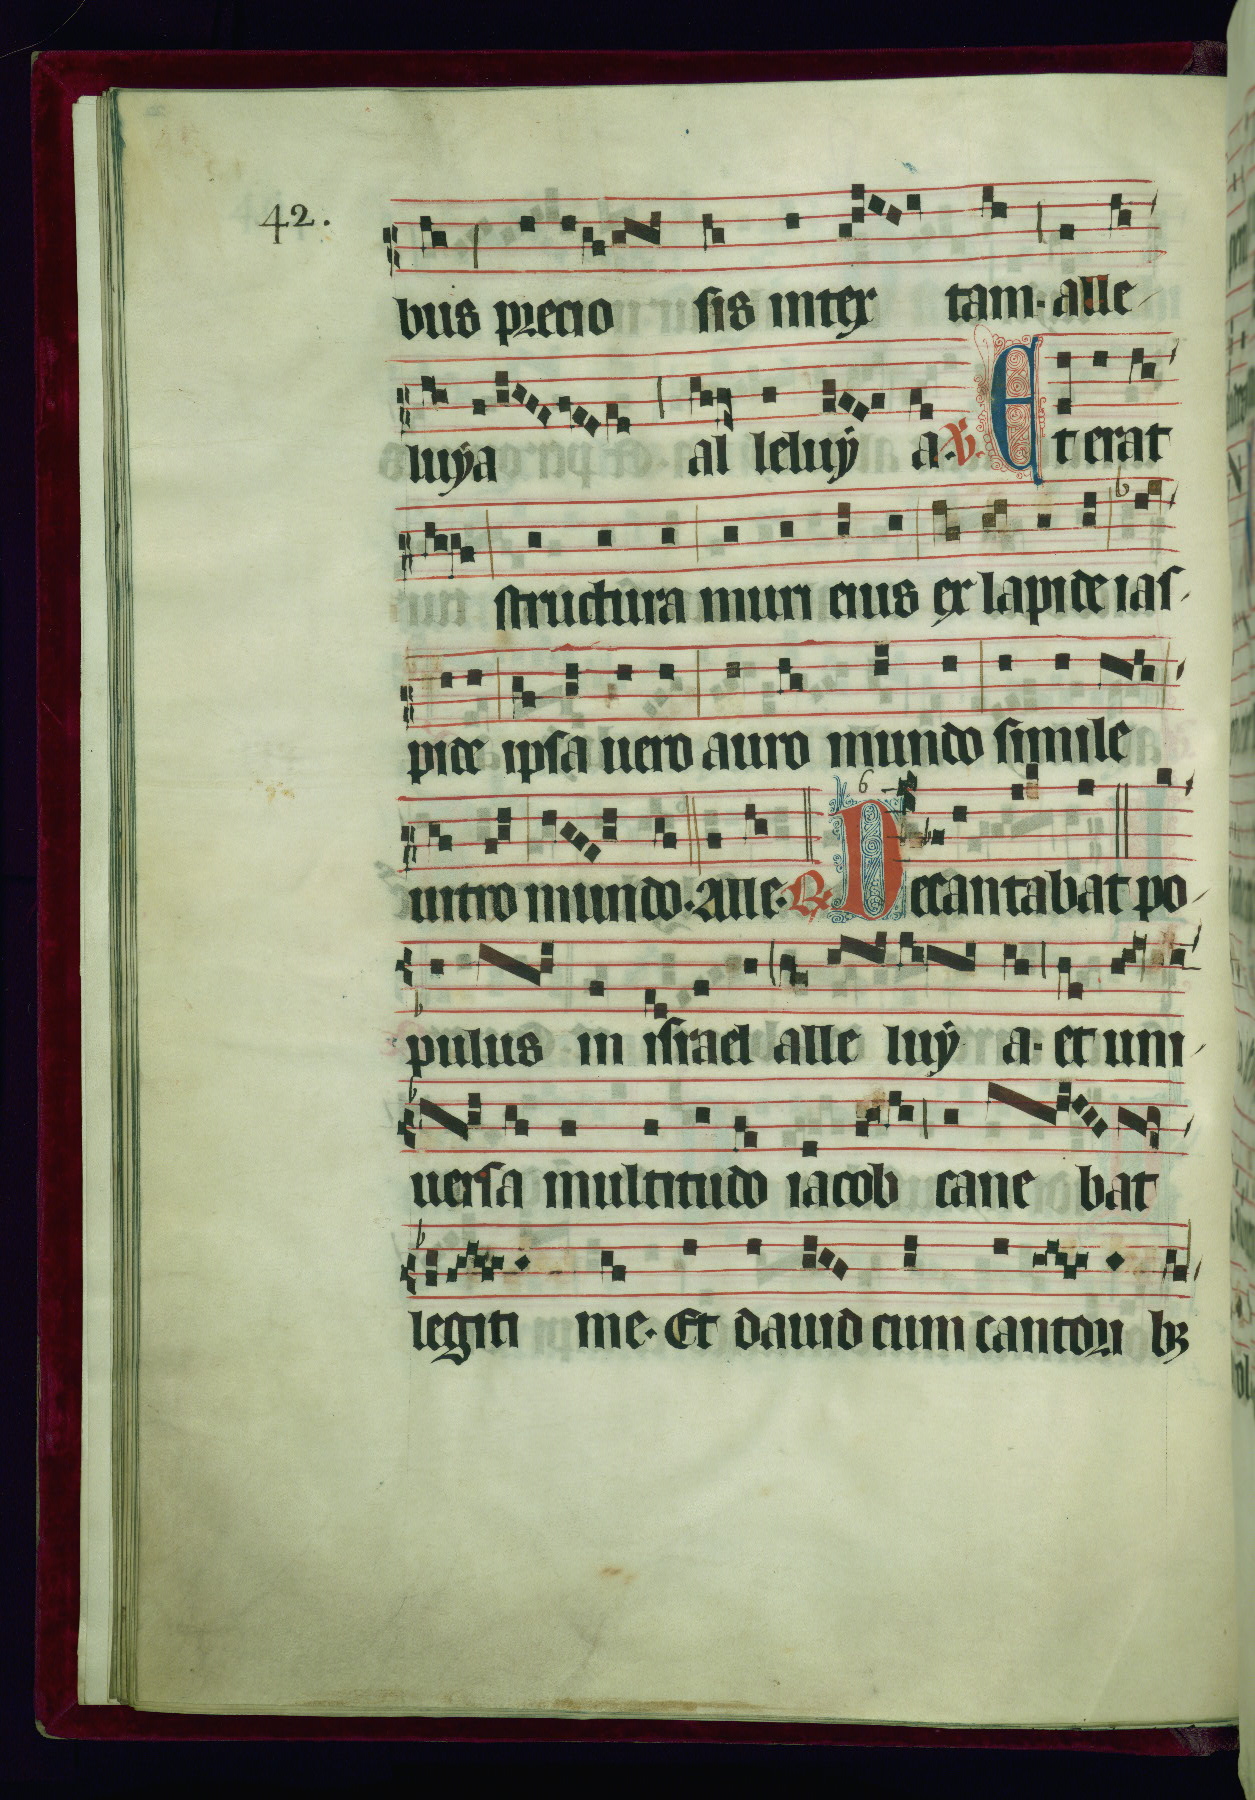 42.
bus precio sis intex tam. alle
luÿa al leluÿ a. ℣. Et erat
structura muri eius ex lapide ias
pide ipsa uero auro mundo simile
uitro mundo. Alle. ℟. 6 Decantabat po
pulus in israel alle luÿ a. et uni
uersa multitudo iacob cane bat
legiti me. Et dauid cum cantori bꝫ